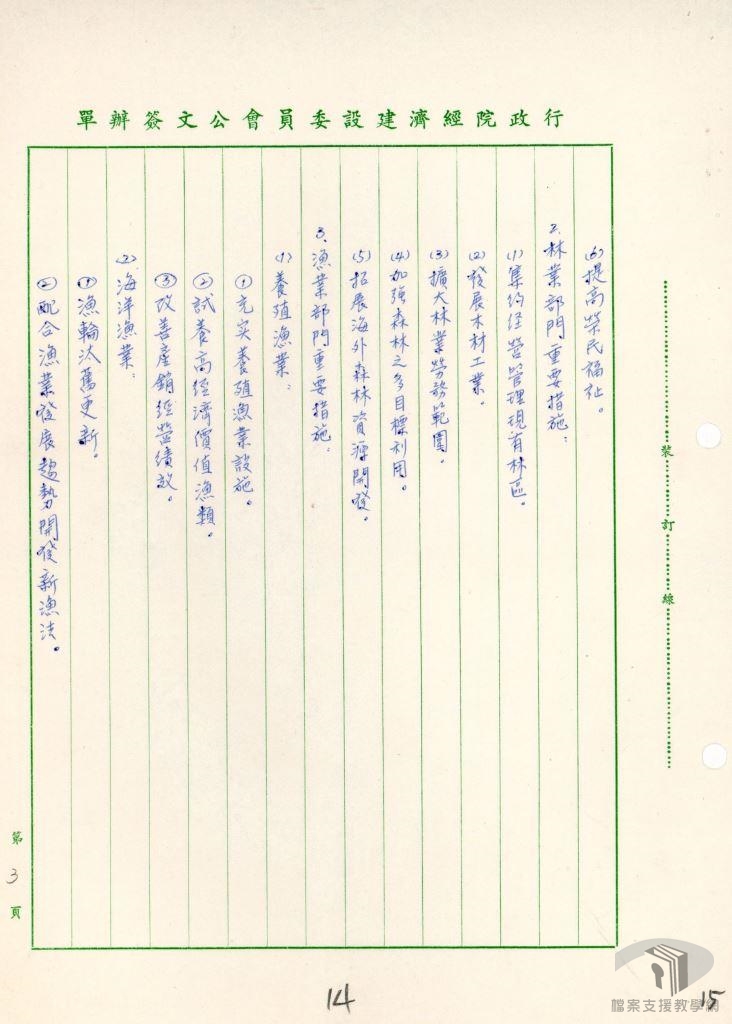 行政院經濟建設委員會公文簽辦單
(6)提高榮民福祉。
2.林業部門重要措施：
(1)集約经营管理現有林區。
(2)發展木材工業。
(3)擴大林業勞務範圍。
(4)加強森林之多目標利用。
(5)拓展海外森林資源開發。
3.漁業部門重要措施：
(1)養殖漁業：
①充实養殖漁業設施。
②試養高經濟價值漁類。
③改善產銷經營績效。
(2)海洋漁業：
①漁輪汰舊更新。
②配合漁業發展趨勢開發新漁法。
裝訂線
第3頁
14
15
檔案支援教學網